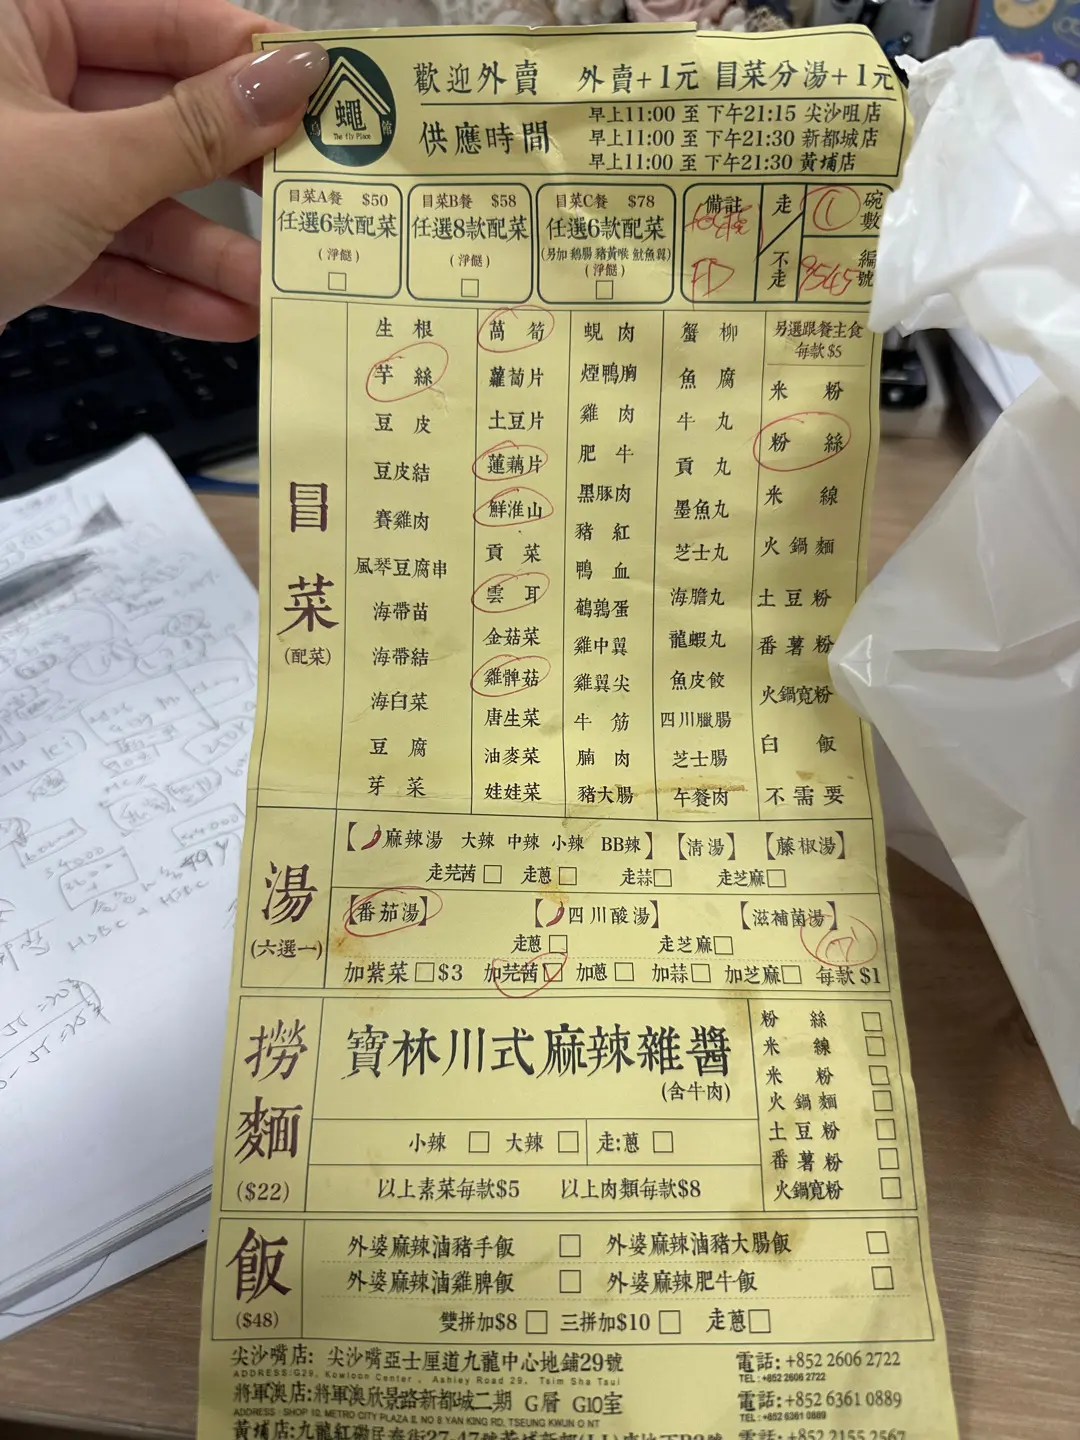 蠅
The fly Place
館
歡迎外賣 外賣+1元 冒菜分湯+1元
供應時間
早上11:00 至 下午21:15 尖沙咀店
早上11:00 至 下午21:30 新都城店
早上11:00 至 下午21:30 黃埔店
冒菜A餐 $50
任選6款配菜
(淨餸)
冒菜B餐 $58
任選8款配菜
(淨餸)
冒菜C餐 $78
任選6款配菜
(另加 鵝腸 豬黃喉 魷魚鬚)
(淨餸)
備註
FD
走
不走
1
碗數
9545
編號
冒菜
(配菜)
生根
芋絲
豆皮
豆皮結
賽雞肉
風琴豆腐串
海帶苗
海帶結
海白菜
豆腐
芽菜
萵筍
蘿蔔片
土豆片
蓮藕片
鮮淮山
貢菜
雲耳
金菇菜
雞髀菇
唐生菜
油麥菜
娃娃菜
蜆肉
煙鴨胸
雞肉
肥牛
黑豚肉
豬紅
鴨血
鵪鶉蛋
雞中翼
雞翼尖
牛筋
腩肉
豬大腸
蟹柳
魚腐
牛丸
貢丸
墨魚丸
芝士丸
海膽丸
龍蝦丸
魚皮餃
四川臘腸
芝士腸
午餐肉
另選跟餐主食
每款$5
米粉
粉絲
米線
火鍋麵
土豆粉
番薯粉
火鍋寬粉
白飯
不需要
湯
(六選一)
【麻辣湯 大辣 中辣 小辣 BB辣】【清湯】【藤椒湯】
走芫茜 走蔥 走蒜 走芝麻
【番茄湯】 【四川酸湯】 【滋補菌湯】
走蔥 走芝麻
加紫菜 $3 加芫茜 加蔥 加蒜 加芝麻 每款$1
撈麵
($22)
寶林川式麻辣雜醬
(含牛肉)
小辣 大辣 走:蔥
以上素菜每款$5 以上肉類每款$8
粉絲
米線
米粉
火鍋麵
土豆粉
番薯粉
火鍋寬粉
飯
($48)
外婆麻辣滷豬手飯 外婆麻辣滷豬大腸飯
外婆麻辣滷雞脾飯 外婆麻辣肥牛飯
雙拼加$8 三拼加$10 走蔥
尖沙嘴店: 尖沙嘴亞士厘道九龍中心地鋪29號 電話: +852 2606 2722
ADDRESS:G29, Kowloon Center, Ashley Road 29, Tsim Sha Tsui TEL: +852 2606 2722
將軍澳店:將軍澳欣景路新都城二期 G層 G10室 電話: +852 6361 0889
ADDRESS: SHOP 10, METRO CITY PLAZA II, NO 8 YAN KING RD, TSEUNG KWUN O NT TEL: +852 6361 0889
黃埔店:九龍紅磡民泰街27-47號黃埔新邨 電話: +852 2155 2567
HSBC